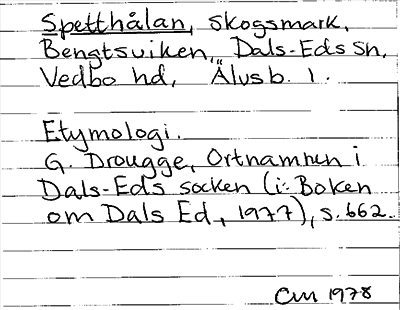 Spetthålan, skogsmark,
Bengtsviken, Dals-Eds sn,
Vedbo hd, Älvsb. l.
Etymologi.
G. Drougge, Ortnamnen i
Dals-Eds socken (i: Boken
om Dals Ed, 1977), s. 662.
CM 1978